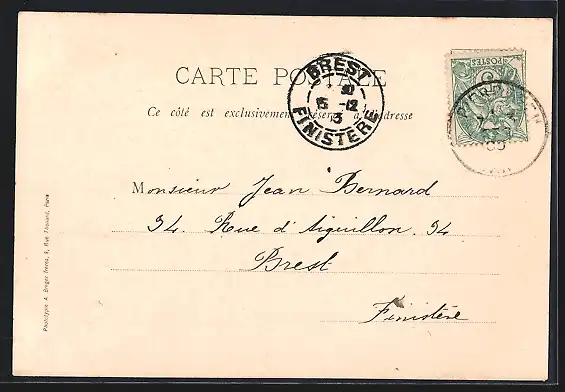 CARTE POSTALE
Ce côté est exclusivement réservé à l'adresse
BREST
15 -12
3
FINISTÈRE
POSTES
Monsieur Jean Bernard
34. Rue d'Aiguillon. 34
Brest
Finistère
Phototypie A. Breger frères, 9, Rue Thénard, Paris